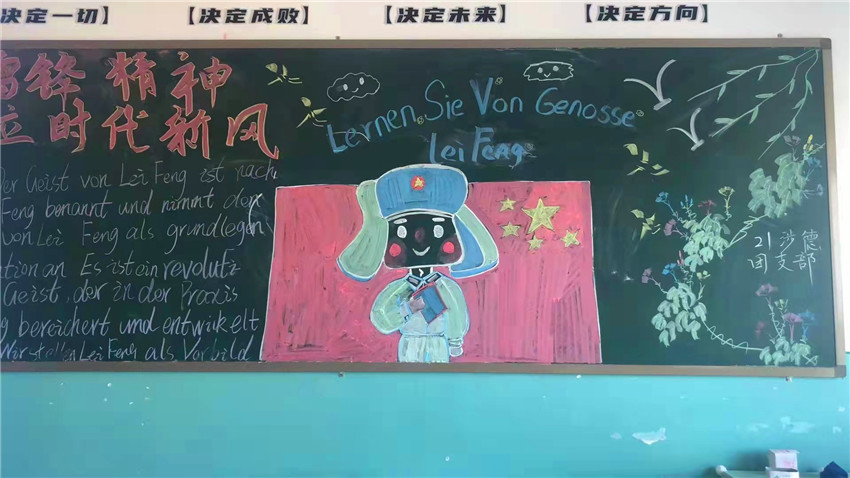 决定一切】
【决定成败】
【决定未来】
【决定方向】
锋 精神
时代新风
Lernen Sie Von Genosse
Lei Feng
Der Geist von Lei Feng ist nach
Feng benannt und nimmt den
von Lei Feng als grundlegen
tion an. Es ist ein revolutz
Geist, der in der Praxis
g bereichert und entwikelt
Wir stellen Lei Feng als Vorbild
21涉德
团支部